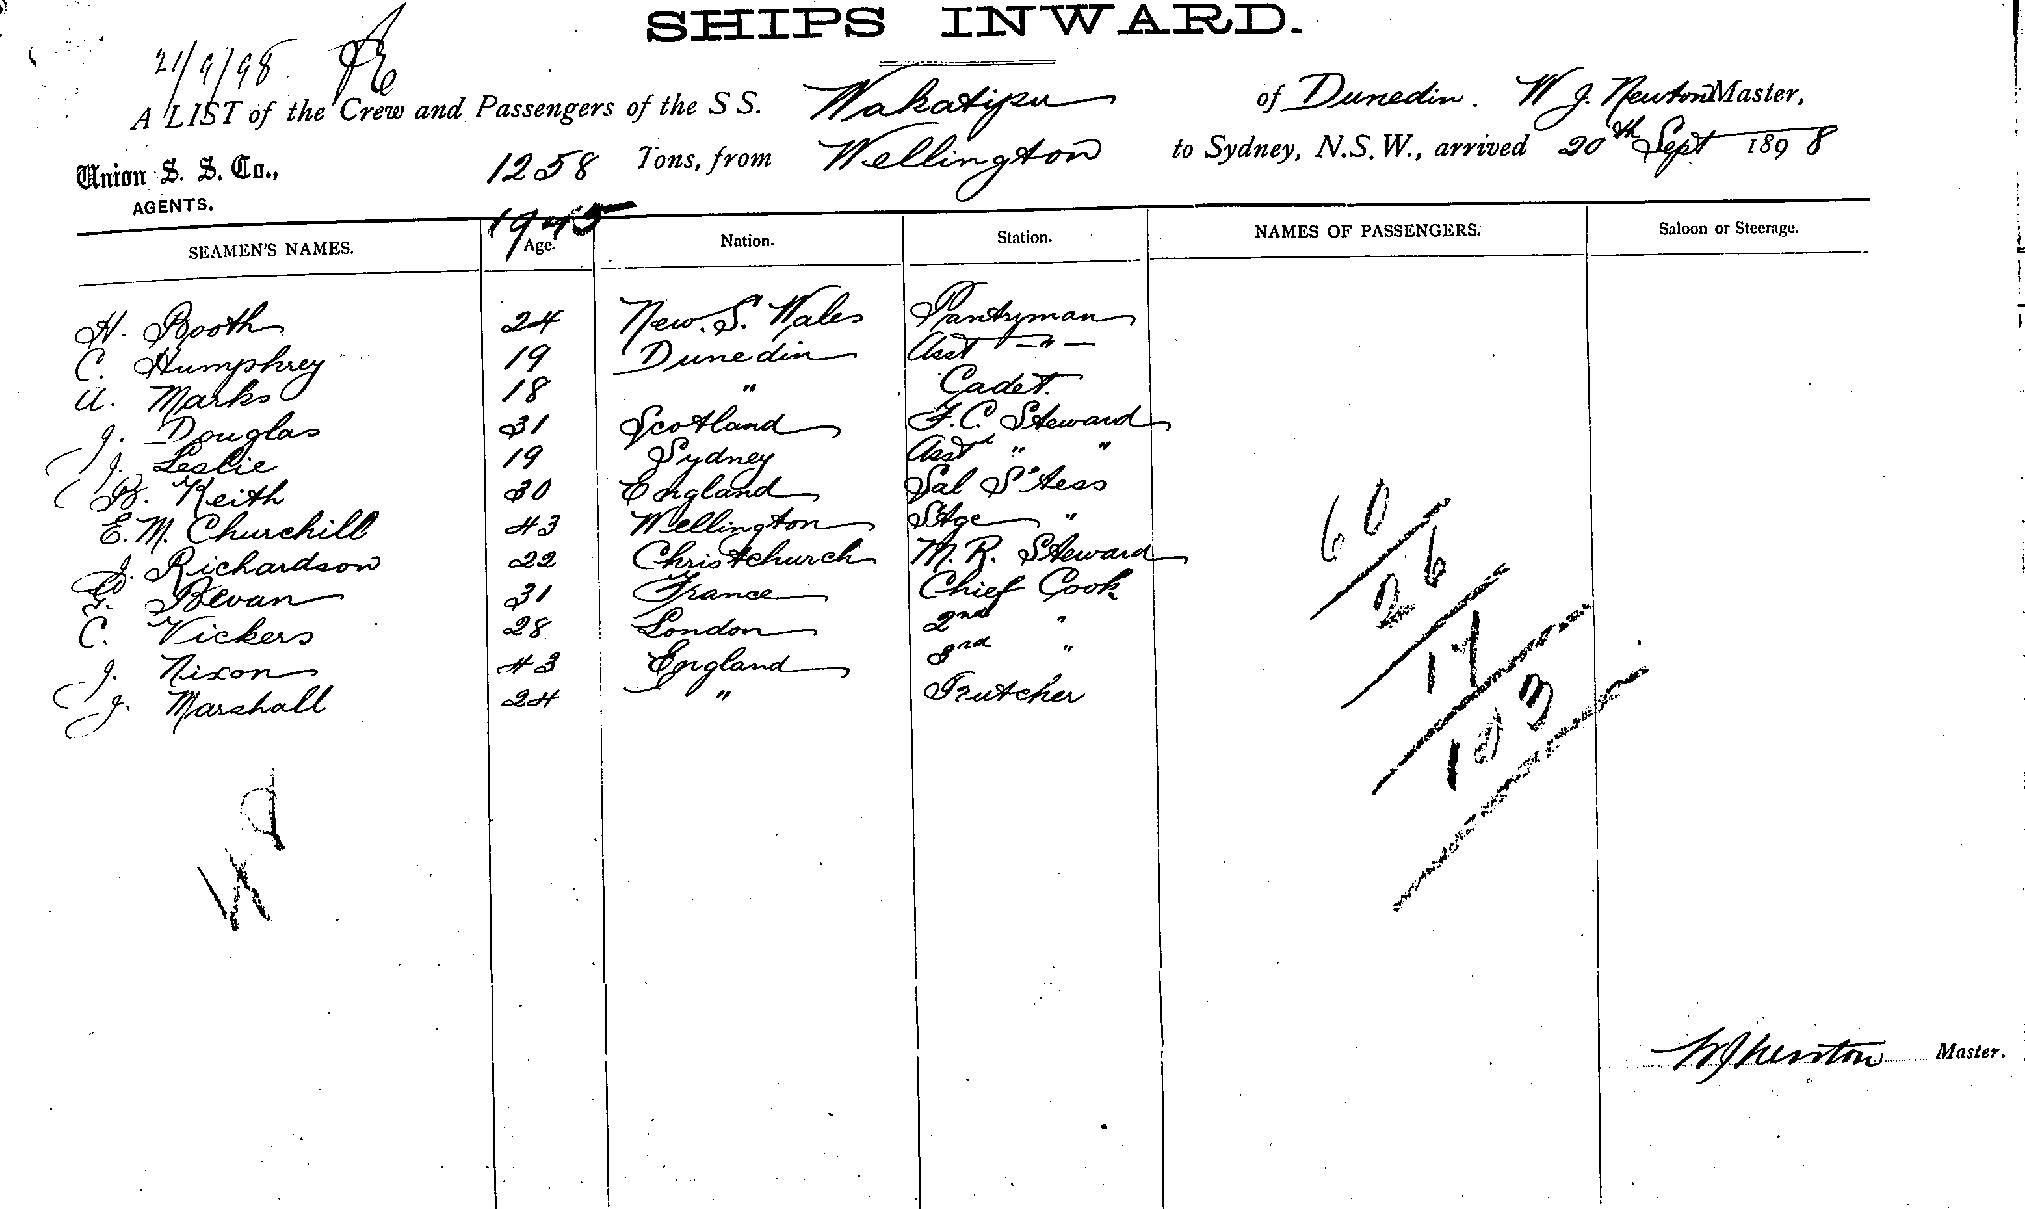 SHIPS INWARD.
21/9/98
A LIST of the Crew and Passengers of the S S. Wakatipu of Dunedin. W J. Newton Master,
Union S. S. Co., 1258 Tons, from Wellington to Sydney, N.S.W., arrived 20th Sept 1898
AGENTS. 1945
SEAMEN'S NAMES. Age. Nation. Station. NAMES OF PASSENGERS. Saloon or Steerage.
H. Booth 24 New. S. Wales Pantryman
C. Humphrey 19 Dunedin Asst — " —
A. Marks 18 " Cadet.
J. Douglas 31 Scotland F.C. Steward
J. Leslie 19 Sydney Asst " "
B. Keith 30 England Sal S'dess
E. M. Churchill 43 Wellington Stge "
J. Richardson 22 Christchurch M. R. Steward
G. Bevan 31 France Chief Cook
C. Vickers 28 London 2nd "
J. Nixon 43 England 3rd "
J. Marshall 24 "
60
26
17
103
W J Newton Master.